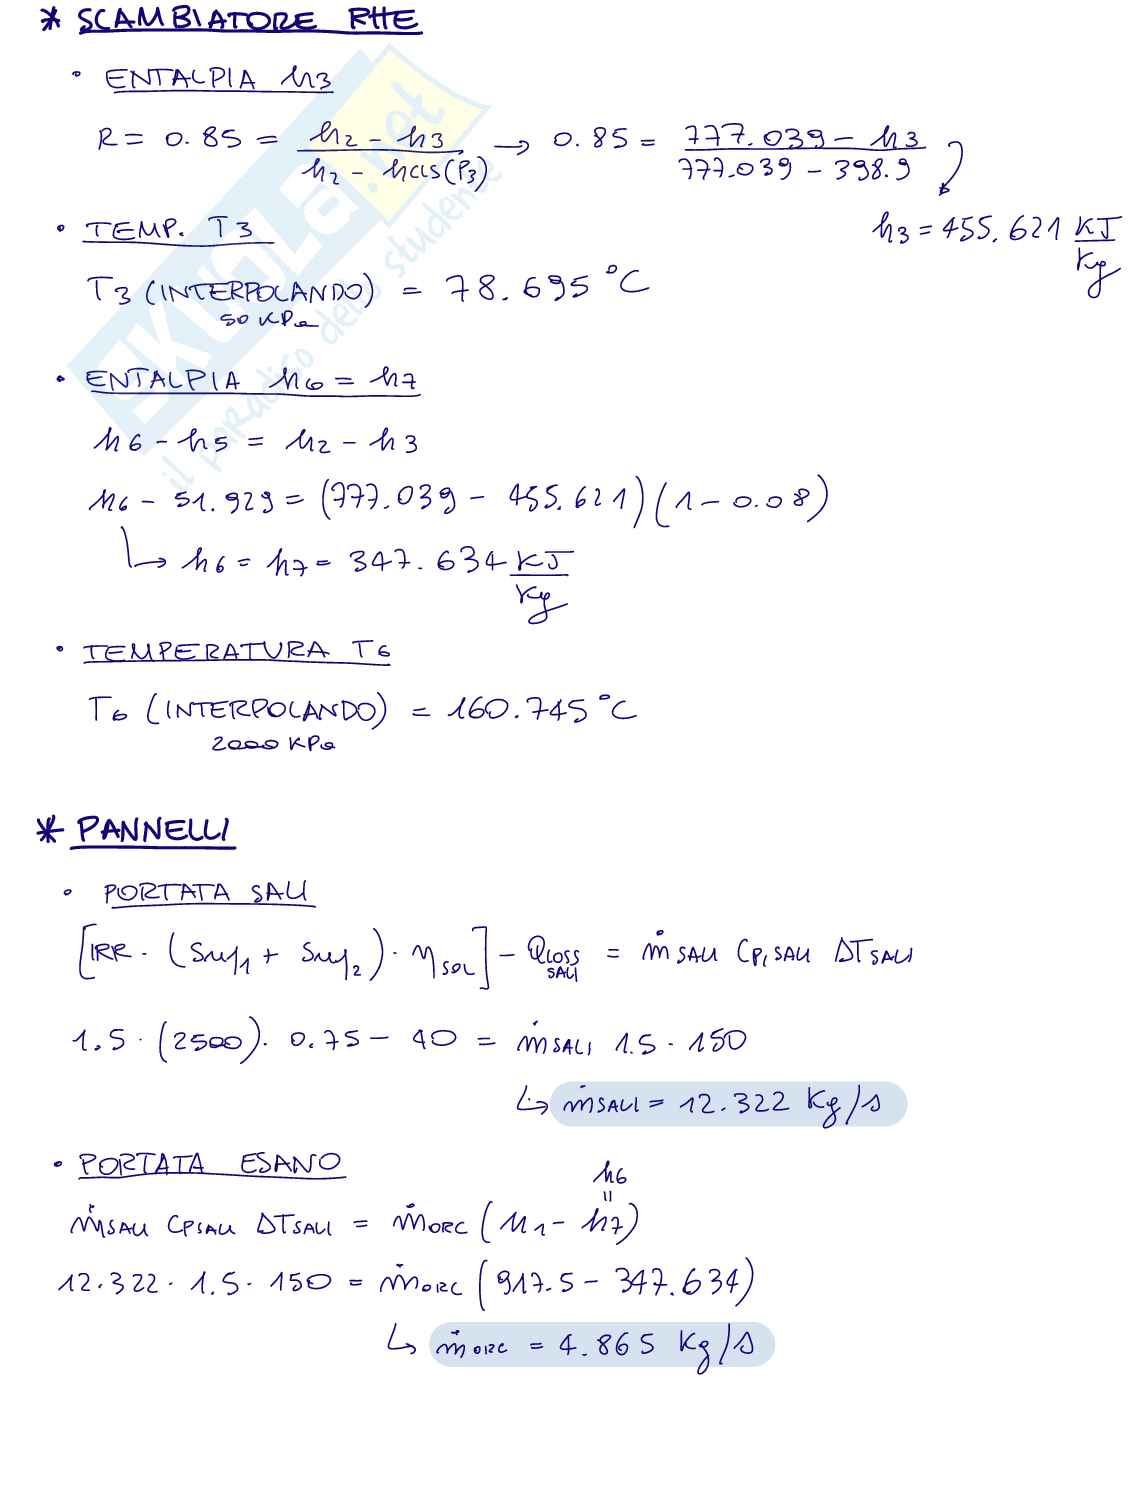 * SCAMBIATORE RHE
• ENTALPIA h3
R = 0.85 = (h2 - h3) / (h2 - hCLS(P3)) → 0.85 = (777.039 - h3) / (777.039 - 398.9)
h3 = 455.621 KJ/Kg
• TEMP. T3
T3 (INTERPOLANDO) = 78.695 °C
50 KPa
• ENTALPIA h6 = h7
h6 - h5 = h2 - h3
h6 - 51.929 = (777.039 - 455.621)(1 - 0.08)
↳ h6 = h7 = 347.634 KJ/Kg
• TEMPERATURA T6
T6 (INTERPOLANDO) = 160.745 °C
2000 KPa
* PANNELLI
• PORTATA SALI
[IRR · (Sup1 + Sup2) · ηSOL] - QLOSS SALI = ṁSALI CP,SALI ΔTSALI
1.5 · (2500) · 0.75 - 40 = ṁSALI 1.5 · 150
↳ ṁSALI = 12.322 Kg/s
• PORTATA ESANO
h6
=
ṁSALI CPSALI ΔTSALI = ṁORC (h1 - h7)
12.322 · 1.5 · 150 = ṁORC (917.5 - 347.634)
↳ ṁORC = 4.865 Kg/s
SKUOLA.net
il paradiso dello studente